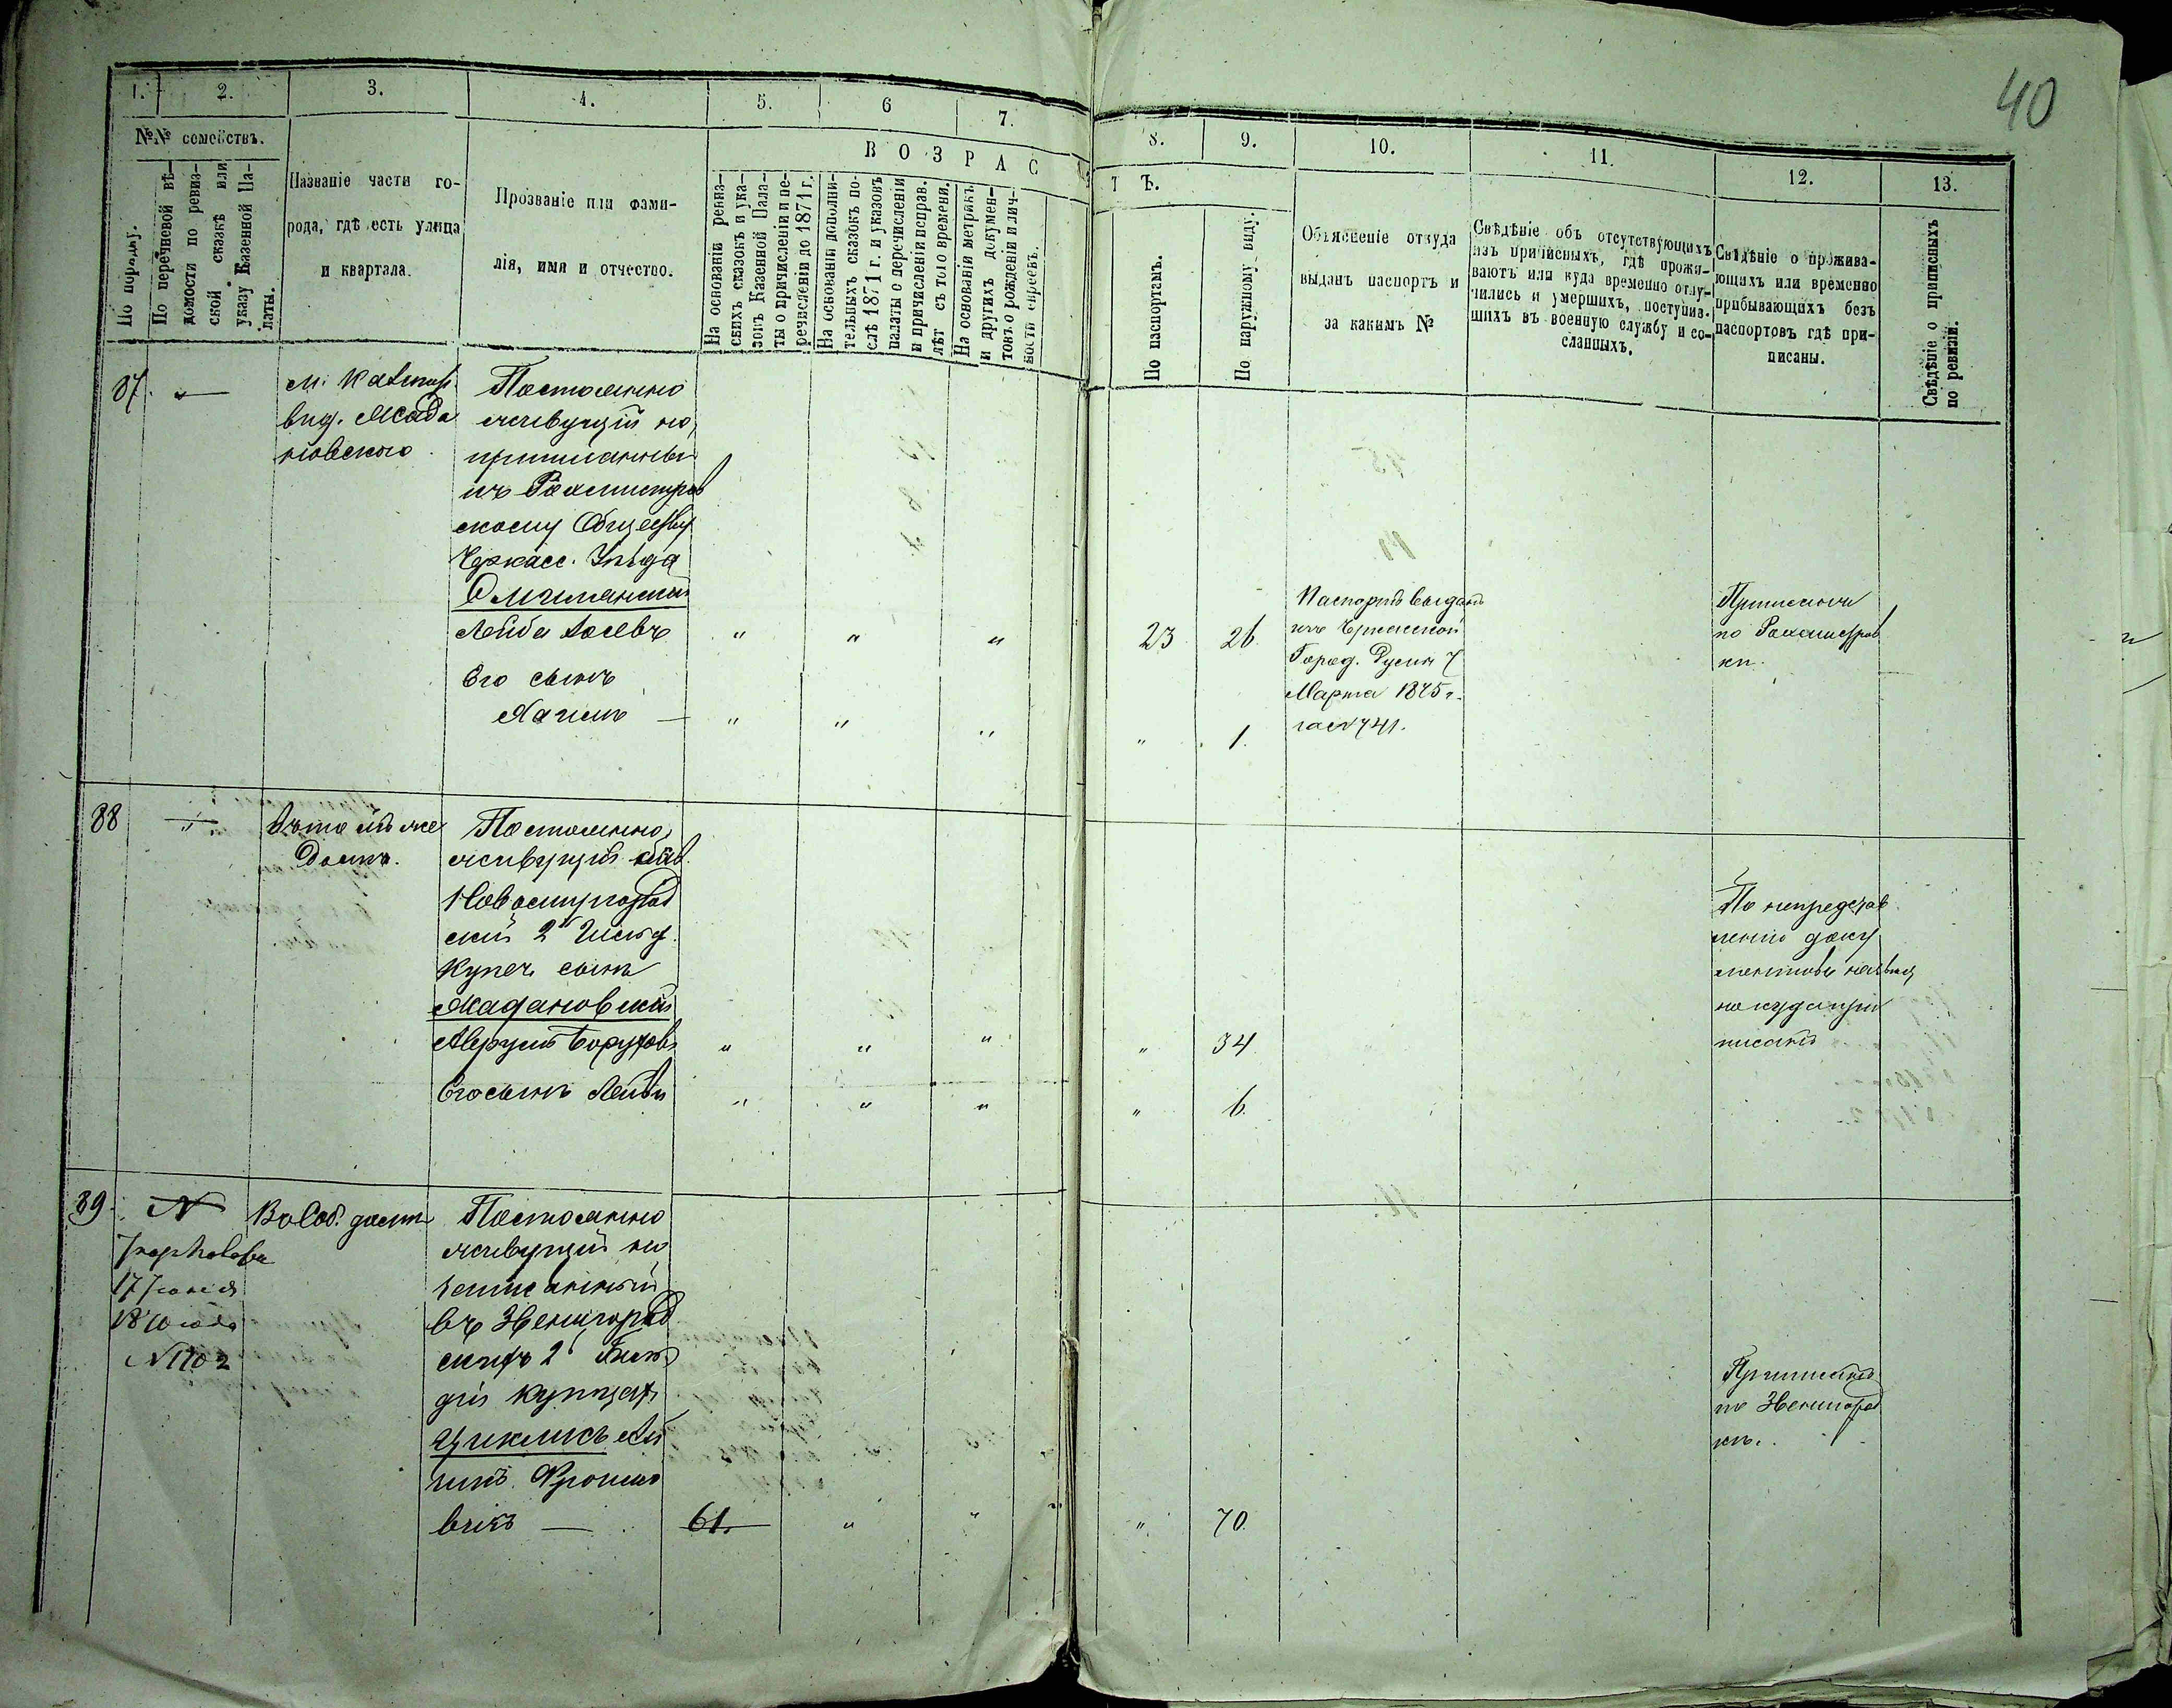 40
1.
2.
3.
4.
5.
6
7.
8.
9.
10.
11.
12.
13.
№№ семействъ.
По порядку.
По перечневой вѣ-
домости по ревиз-
ской сказкѣ или
указу Казенной Па-
латы.
Названіе части го-
рода, гдѣ есть улица
и квартала.
Прозваніе или фами-
лія, имя и отчество.
ВОЗРАС
ТЪ.
На основаніи ревиз-
скихъ сказокъ и ука-
зовъ Казенной Пала-
ты о причисленіи и пе-
речисленіи до 1871 г.
На основаніи дополни-
тельныхъ сказокъ по-
слѣ 1871 г. и указовъ
палаты о перечисленіи
и причисленіи исправ.
лѣт съ того времени.
На основаніи метрикъ
и другихъ докумен-
товъ о рожденіи и лич-
ности евреевъ.
По паспортамъ.
По наружному виду.
Объясненіе откуда
выданъ паспортъ и
за какимъ №
Свѣдѣніе объ отсутствующихъ
изъ приписныхъ, гдѣ прожи-
ваютъ или куда временно отлу-
чились и умершихъ, поступив-
шихъ въ военную службу и со-
сланныхъ.
Свѣдѣніе о прожива-
ющихъ или временно
прибывающихъ безъ
паспортовъ гдѣ при-
писаны.
Свѣдѣніе о приписныхъ
по ревизіи.
87. „
Постоянно
живущій но
приписанный
къ Рахмистров
скому Обществу
Черкасс. Уѣзда
Лейба
Его сынъ
" " " 23 26.
" " " " 1.
Паспортъ выданъ
изъ Черкасской
Город. Думы 7
Марта 1875 г.
за №741.
по Рахмистров
кѣ.
88 „ Въ томъ же
домѣ.
Постоянно
живущій
Новомиргород
скій 2й Гильд.
Купеч. сынъ
Мадановскій
Аврумъ Боруховъ " " " " 34
Его сынъ Лейба " " " " 6.
По непредстав
ленію доку
ментовъ
но куда при
писанъ
89. № Въ Соб. домѣ
17 Іюня
№1702
Постоянно
живущій но
записанный
въ Звенигород
скихъ 2й Гиль
діи купцахъ
вичъ — 61. " " " 70.
Приписанъ
по Звенигород
кѣ.